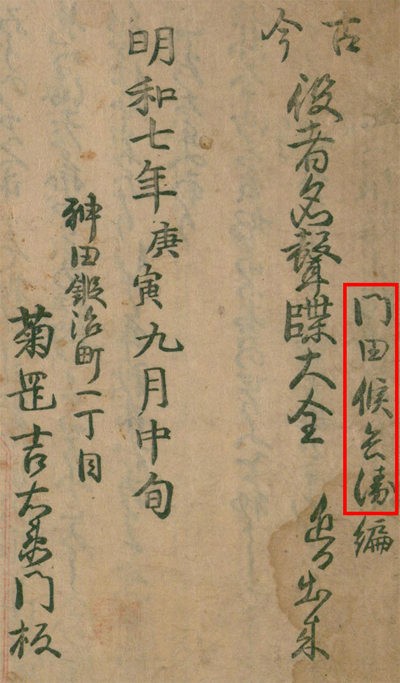 古今
門田候兵衛編
役者名聲牒大全 出来
明和七年庚寅九月中旬
神田鍛治町一丁目
菊罡吉右衛門板